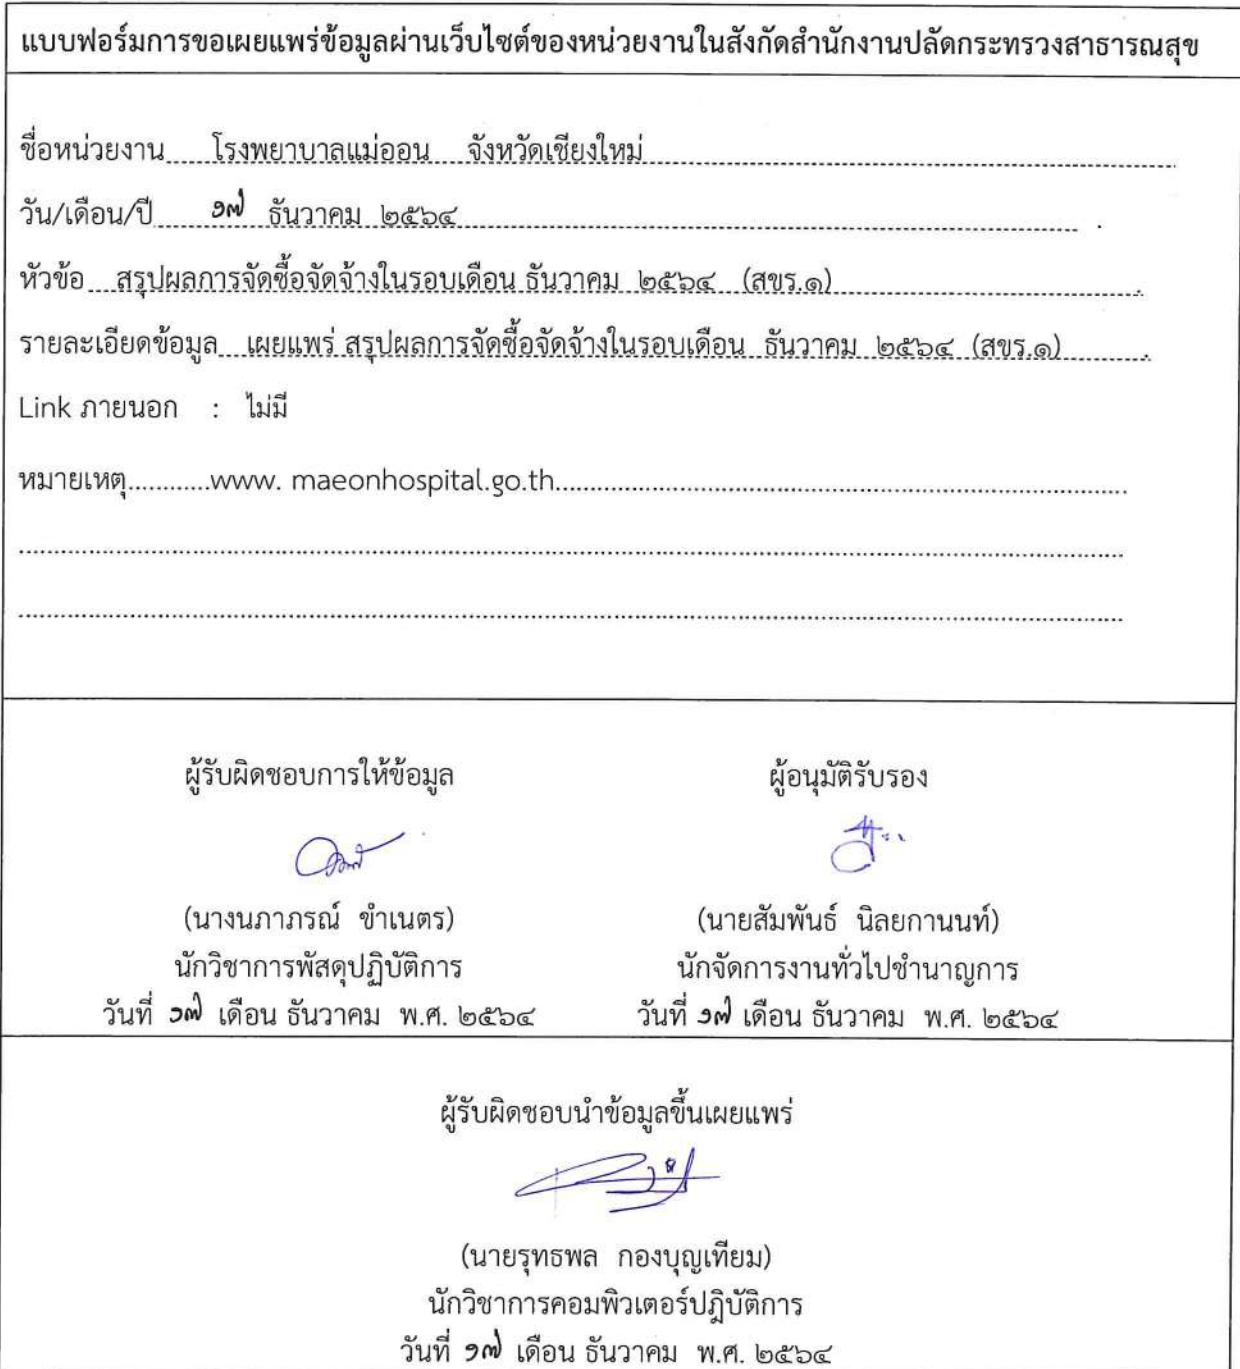 แบบฟอร์มการขอเผยแพร่ข้อมูลผ่านเว็บไซต์ของหน่วยงานในสังกัดสำนักงานปลัดกระทรวงสาธารณสุข
ชื่อหน่วยงาน.....โรงพยาบาลแม่ออน จังหวัดเชียงใหม่
วัน/เดือน/ปี ๑๗ ธันวาคม ๒๕๖๔
หัวข้อ สรุปผลการจัดซื้อจัดจ้างในรอบเดือน ธันวาคม ๒๕๖๔ (สขร.๑)
รายละเอียดข้อมูล เผยแพร่ สรุปผลการจัดซื้อจัดจ้างในรอบเดือน ธันวาคม ๒๕๖๔ (สขร.๑)
Link ภายนอก : ไม่มี
หมายเหตุ............www. maeonhospital.go.th
ผู้รับผิดชอบการให้ข้อมูล ผู้อนุมัติรับรอง
(นางนภาภรณ์ ขำเนตร) (นายสัมพันธ์ นิลยกานนท์)
นักวิชาการพัสดุปฏิบัติการ นักจัดการงานทั่วไปชำนาญการ
วันที่ ๑๗ เดือน ธันวาคม พ.ศ. ๒๕๖๔ วันที่ ๑๗ เดือน ธันวาคม พ.ศ. ๒๕๖๔
ผู้รับผิดชอบนำข้อมูลขึ้นเผยแพร่
(นายรุทธพล กองบุญเทียม)
นักวิชาการคอมพิวเตอร์ปฏิบัติการ
วันที่ ๑๗ เดือน ธันวาคม พ.ศ. ๒๕๖๔